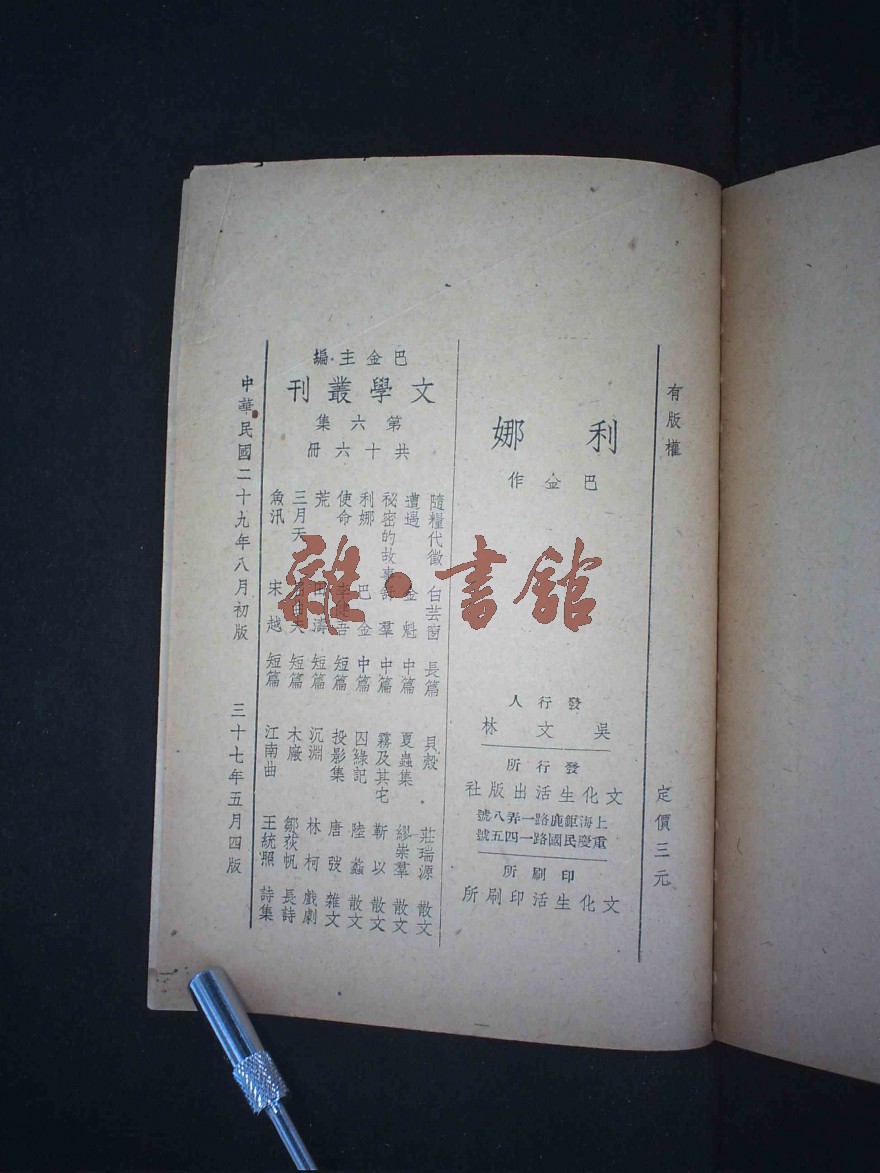 有版權
定價三元
利娜
巴金作
發行人
吳文林
發行所
文化生活出版社
上海鉅鹿路一弄八號
重慶民國路一四五號
印刷所
文化生活印刷所
巴金主·編
文學叢刊
第六集
共十六冊
隨糧代徵 白芸窗 長篇
遭遇 金魁 中篇
秘密的故事 羣 中篇
利娜 巴金 中篇
使命 李健吾 短篇
荒 田濤 短篇
三月天 屈曲夫 短篇
魚汛 宋越 短篇
貝殼 莊瑞源 散文
夏蟲集 繆崇羣 散文
霧及其它 靳以 散文
囚綠記 陸蠡 散文
投影集 唐弢 雜文
沉淵 林柯 戲劇
木廠 鄒荻帆 長詩
江南曲 王統照 詩集
中華民國二十九年八月初版
三十七年五月四版
雜·書館